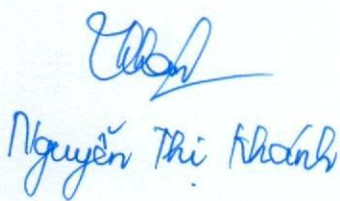 Nguyễn Thị Khánh